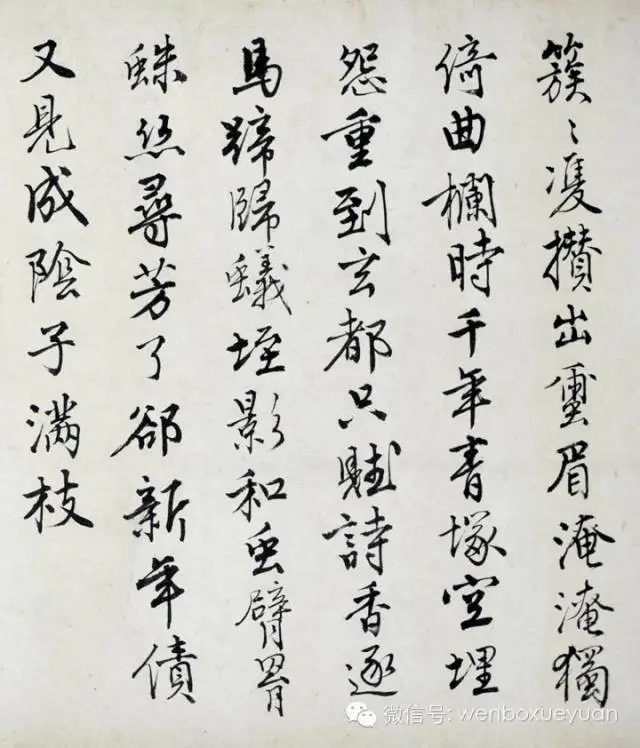 簇〻雙攢出繭眉淹淹獨
倚曲欄時千年青塚空埋
怨重到玄都只賦詩香逐
馬蹄歸蟻垤影和虫臂罥
蛛絲尋芳了卻新年債
又見成陰子滿枝
微信号: wenboxueyuan